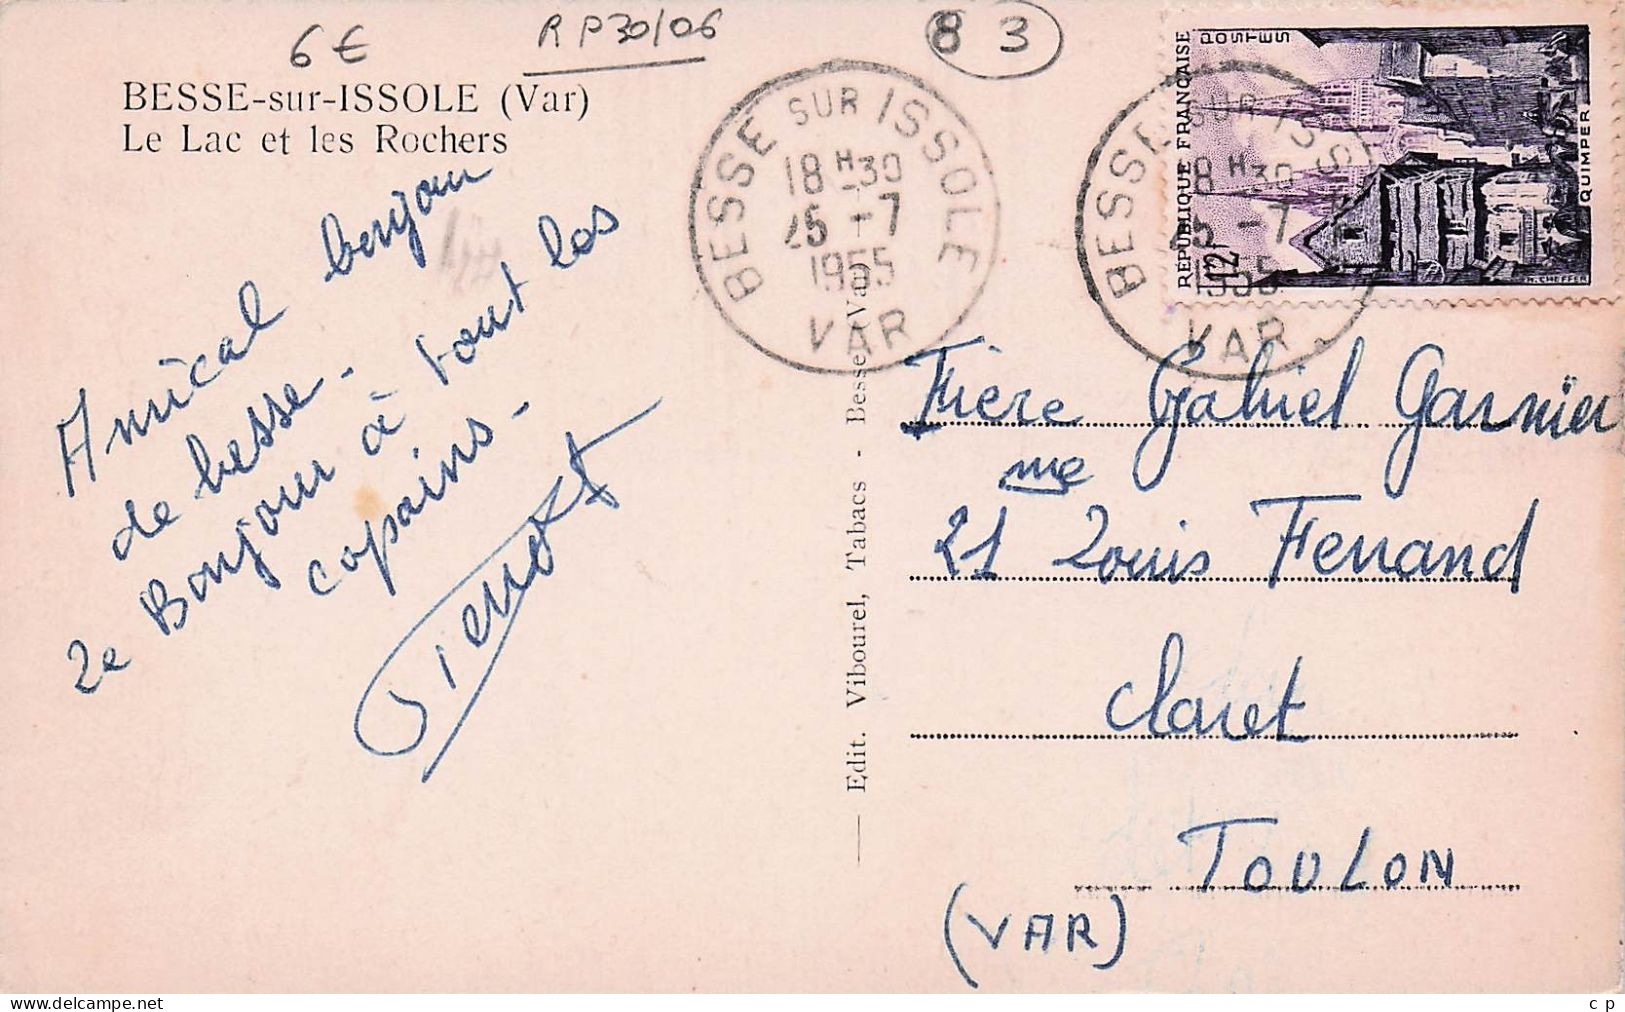 6€
RP30/06
83
BESSE-sur-ISSOLE (Var)
Le Lac et les Rochers
Amical bonjour
de besse.
2e Bonjour à tout les
copains.
Pierrot
BESSE SUR ISSOLE
18H30
25-7
1955
VAR
BESSE SUR ISSOLE
18H30
25-7
1955
VAR
RÉPUBLIQUE FRANÇAISE
POSTES
12F
QUIMPER
H. CHEFFER
Edit. Vibourel, Tabacs - Besse (Var)
Frère Gabriel Garnier
21 Louis Ferrand
Claret
TOULON
(VAR)
c p